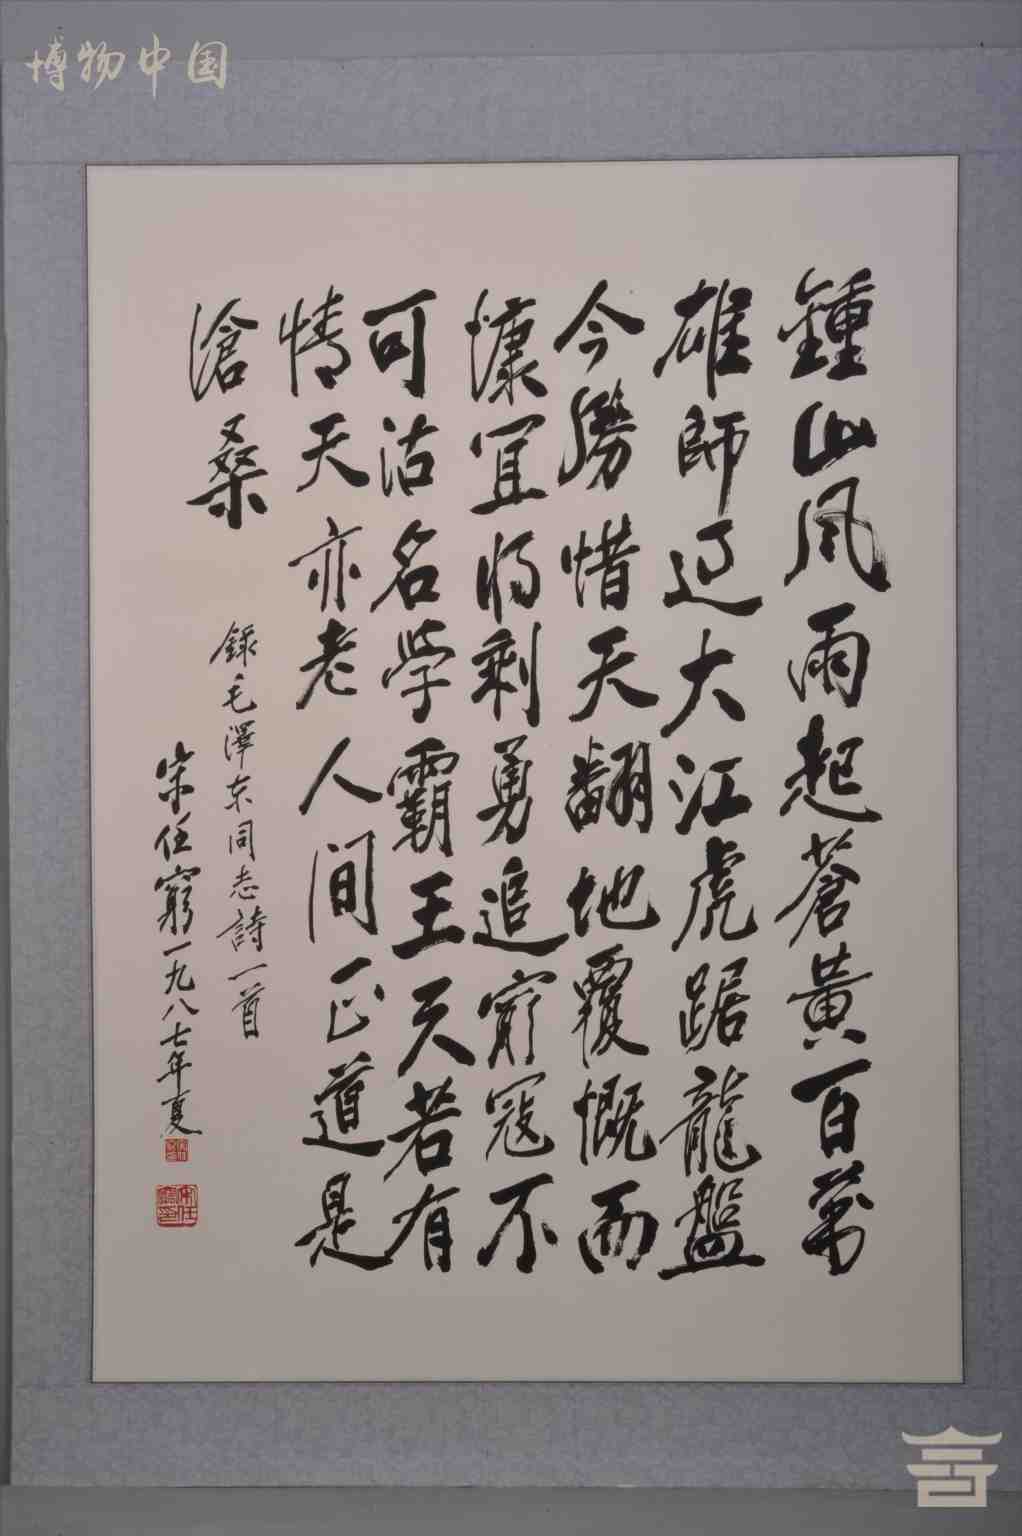 博物中国
鍾山风雨起蒼黄百萬
雄師过大江虎踞龍盤
今勝惜天翻地覆慨而
慷宜将剩勇追穷寇不
可沽名学霸王天若有
情天亦老人間正道是
滄桑
録毛澤东同志詩一首
宋任窮一九八七年夏